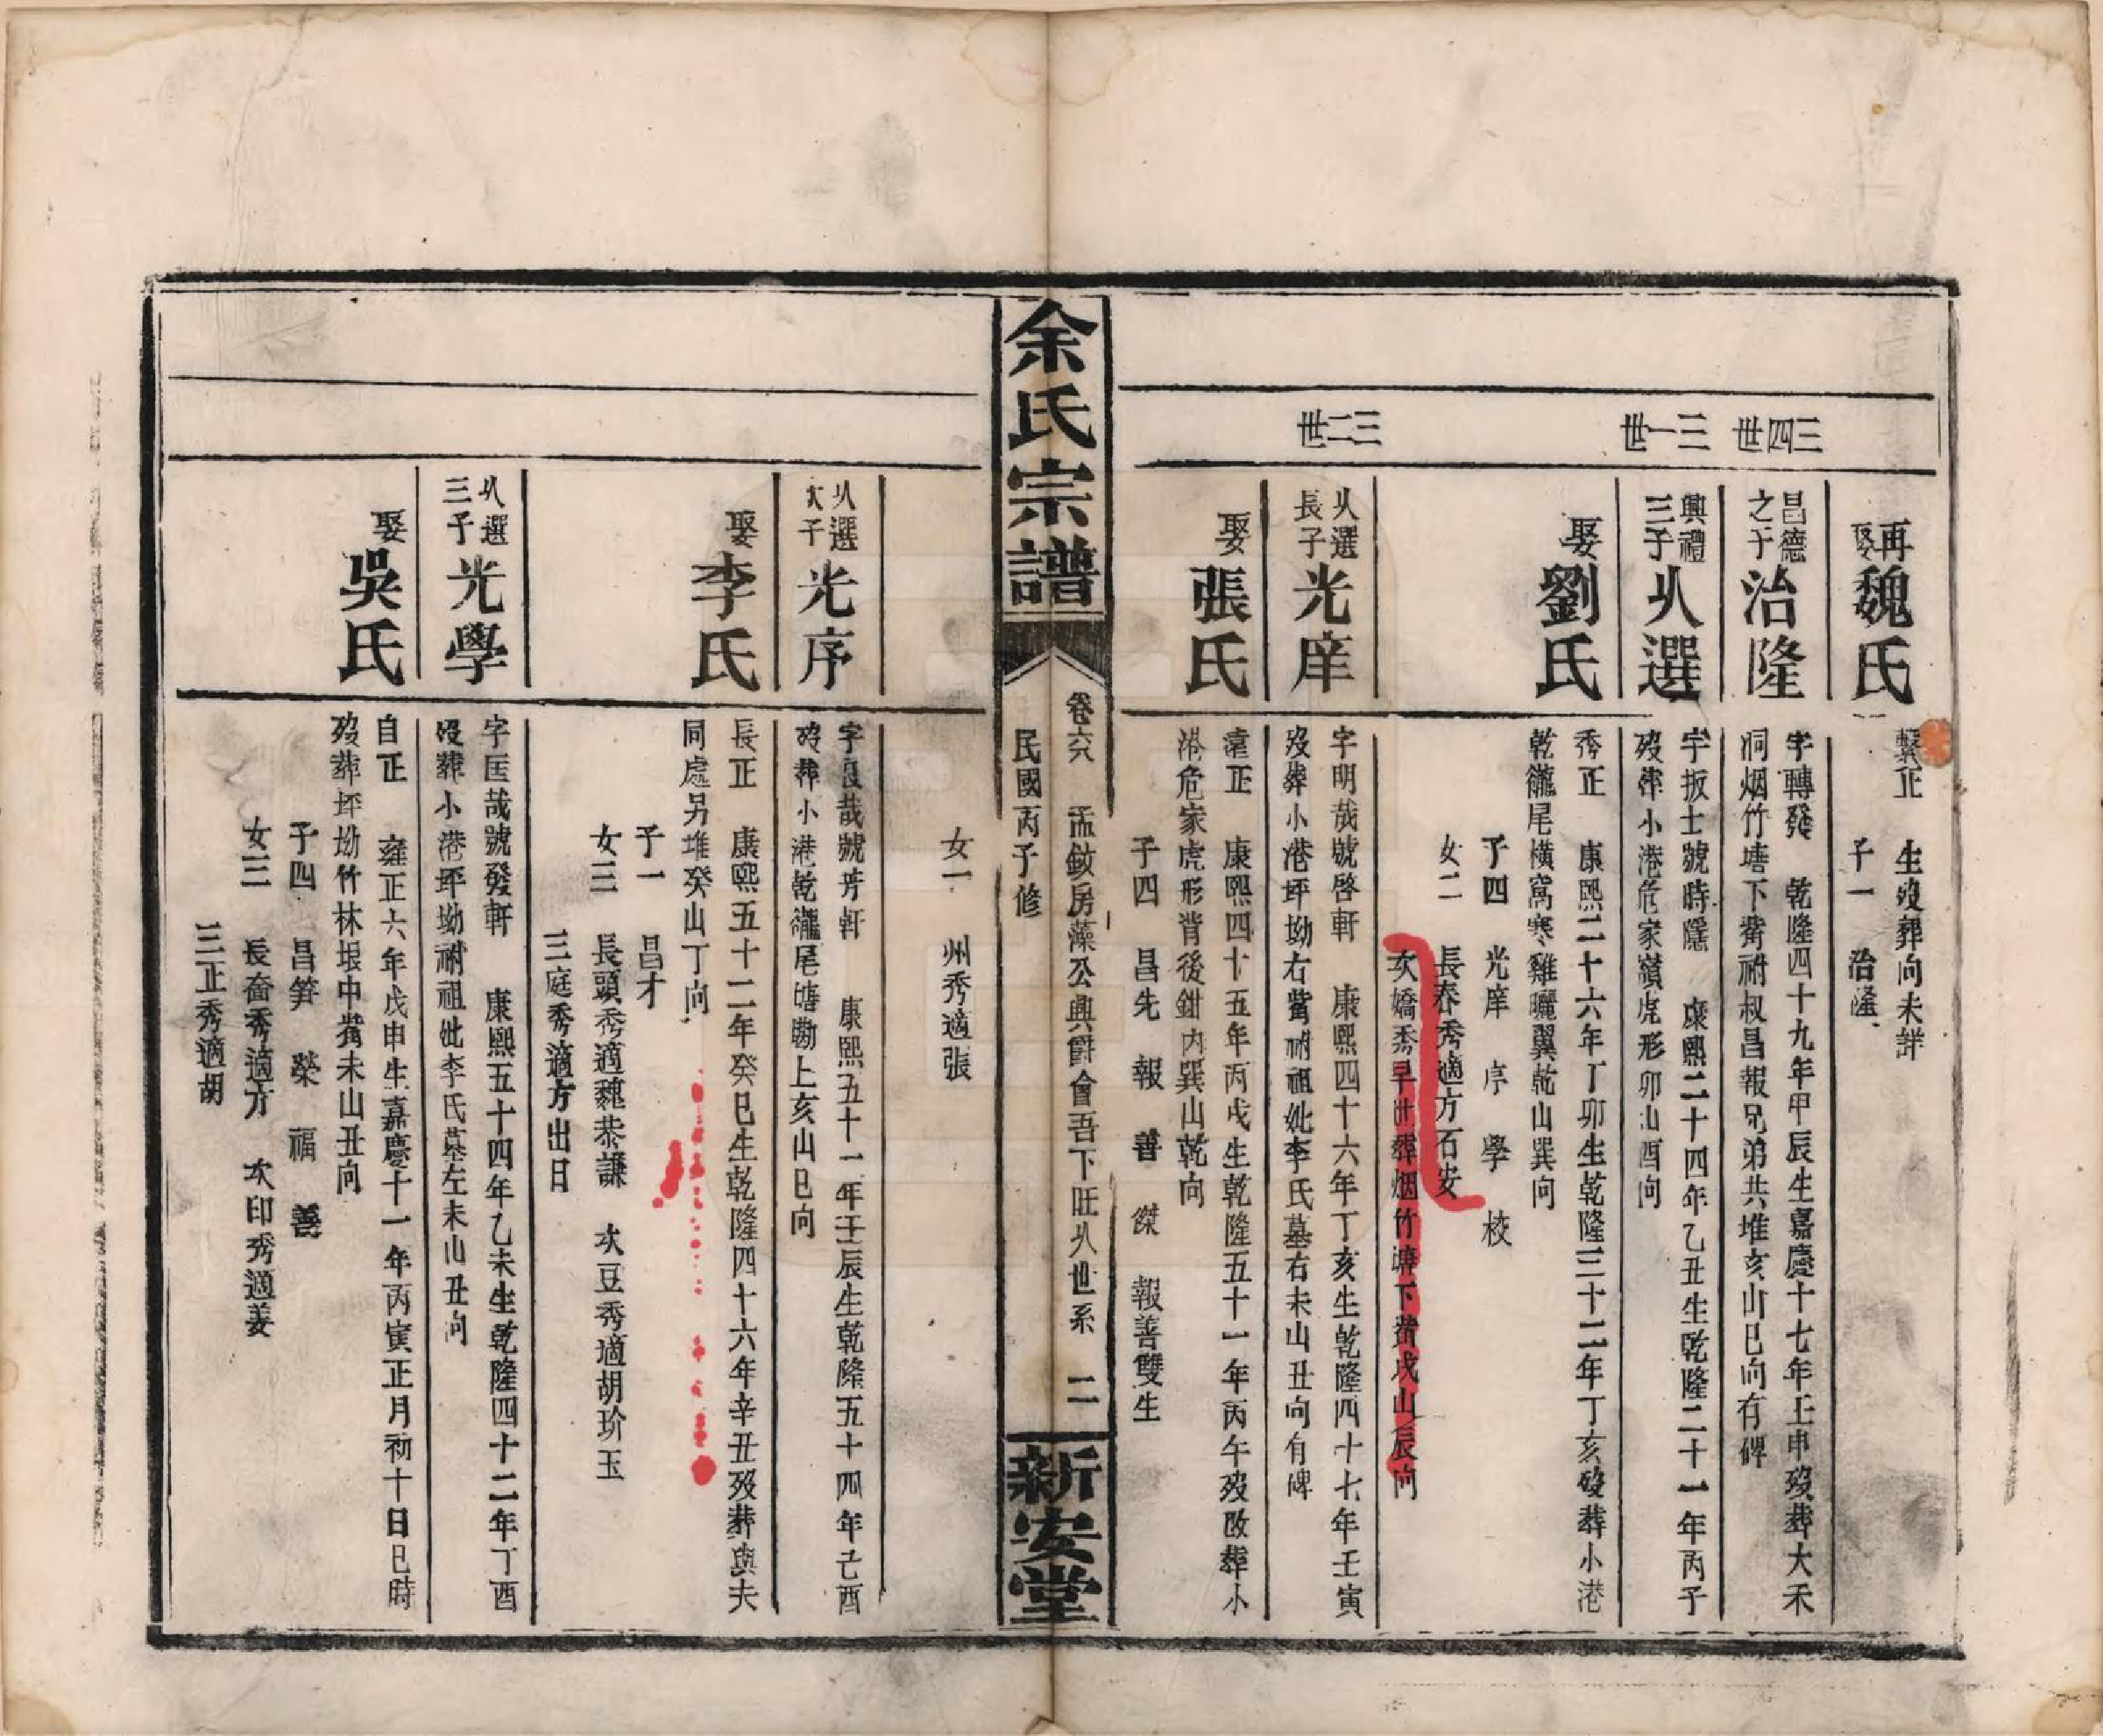 三四世
三一世
三二世
再娶魏氏
繫正 生歿葬向未詳
子一 治隆
昌德之子治隆
字轉發 乾隆四十九年甲辰生嘉慶十七年壬申歿葬大禾
洞烟竹塘下鴬祔叔昌報兄弟共堆亥山巳向有碑
興禮三子从選
字扳士號時隱 康熙二十四年乙丑生乾隆二十一年丙子
歿葬小港危家嶺虎形卯山酉向
娶劉氏
秀正 康熙二十六年丁卯生乾隆三十二年丁亥歿葬小港
乾龍尾橫窩寒雞曬翼乾山巽向
子四 光庠 序 學 校
女二 長春秀適方石安
次嬌秀早世葬烟竹塘下鴬戌山辰向
从選長子光庠
字明哉號啓軒 康熙四十六年丁亥生乾隆四十七年壬寅
歿葬小港坪坳右鴬祔祖妣李氏墓右未山丑向有碑
娶張氏
遠正 康熙四十五年丙戌生乾隆五十一年丙午歿改葬小
港危家虎形背後鉗內巽山乾向
子四 昌先 報 善 傑 報善雙生
余氏宗譜
卷六 孟敏房藻公興爵會吾下旺从世系 二
民國丙子修
新安堂
女一 州秀適張
从選次子光序
字良哉號芳軒 康熙五十一年壬辰生乾隆五十四年己酉
歿葬小港乾龍尾塘勘上亥山巳向
娶李氏
長正 康熙五十二年癸巳生乾隆四十六年辛丑歿葬與夫
同處另堆癸山丁向
子一 昌才
女三 長頭秀適魏恭謙 次豆秀適胡玠玉
三庭秀適方出日
从選三子光學
字匡哉號發軒 康熙五十四年乙未生乾隆四十二年丁酉
歿葬小港坪坳祔祖妣李氏墓左未山丑向
娶吳氏
自正 雍正六年戊申生嘉慶十一年丙寅正月初十日巳時
歿葬坪坳竹林垠中鴬未山丑向
子四 昌笋 榮 福 善
女三 長奋秀適方 次印秀適姜
三正秀適胡